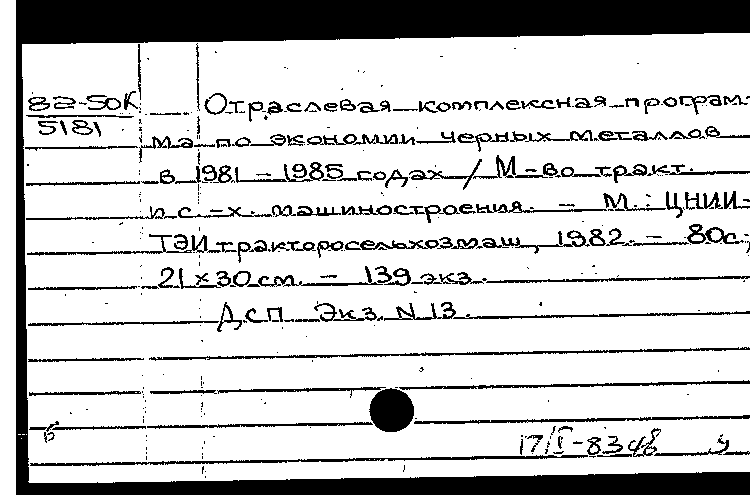 82-50К
5181
Отраслевая комплексная програм-
ма по экономии черных металлов
в 1981 - 1985 годах / М-во тракт.
и с.-х. машиностроения. - М.: ЦНИИ-
ТЭИтракторосельхозмаш, 1982. - 80с;
21 x 30 см. - 139 экз.
ДСП Экз. N 13.
б
17/I-8348 у